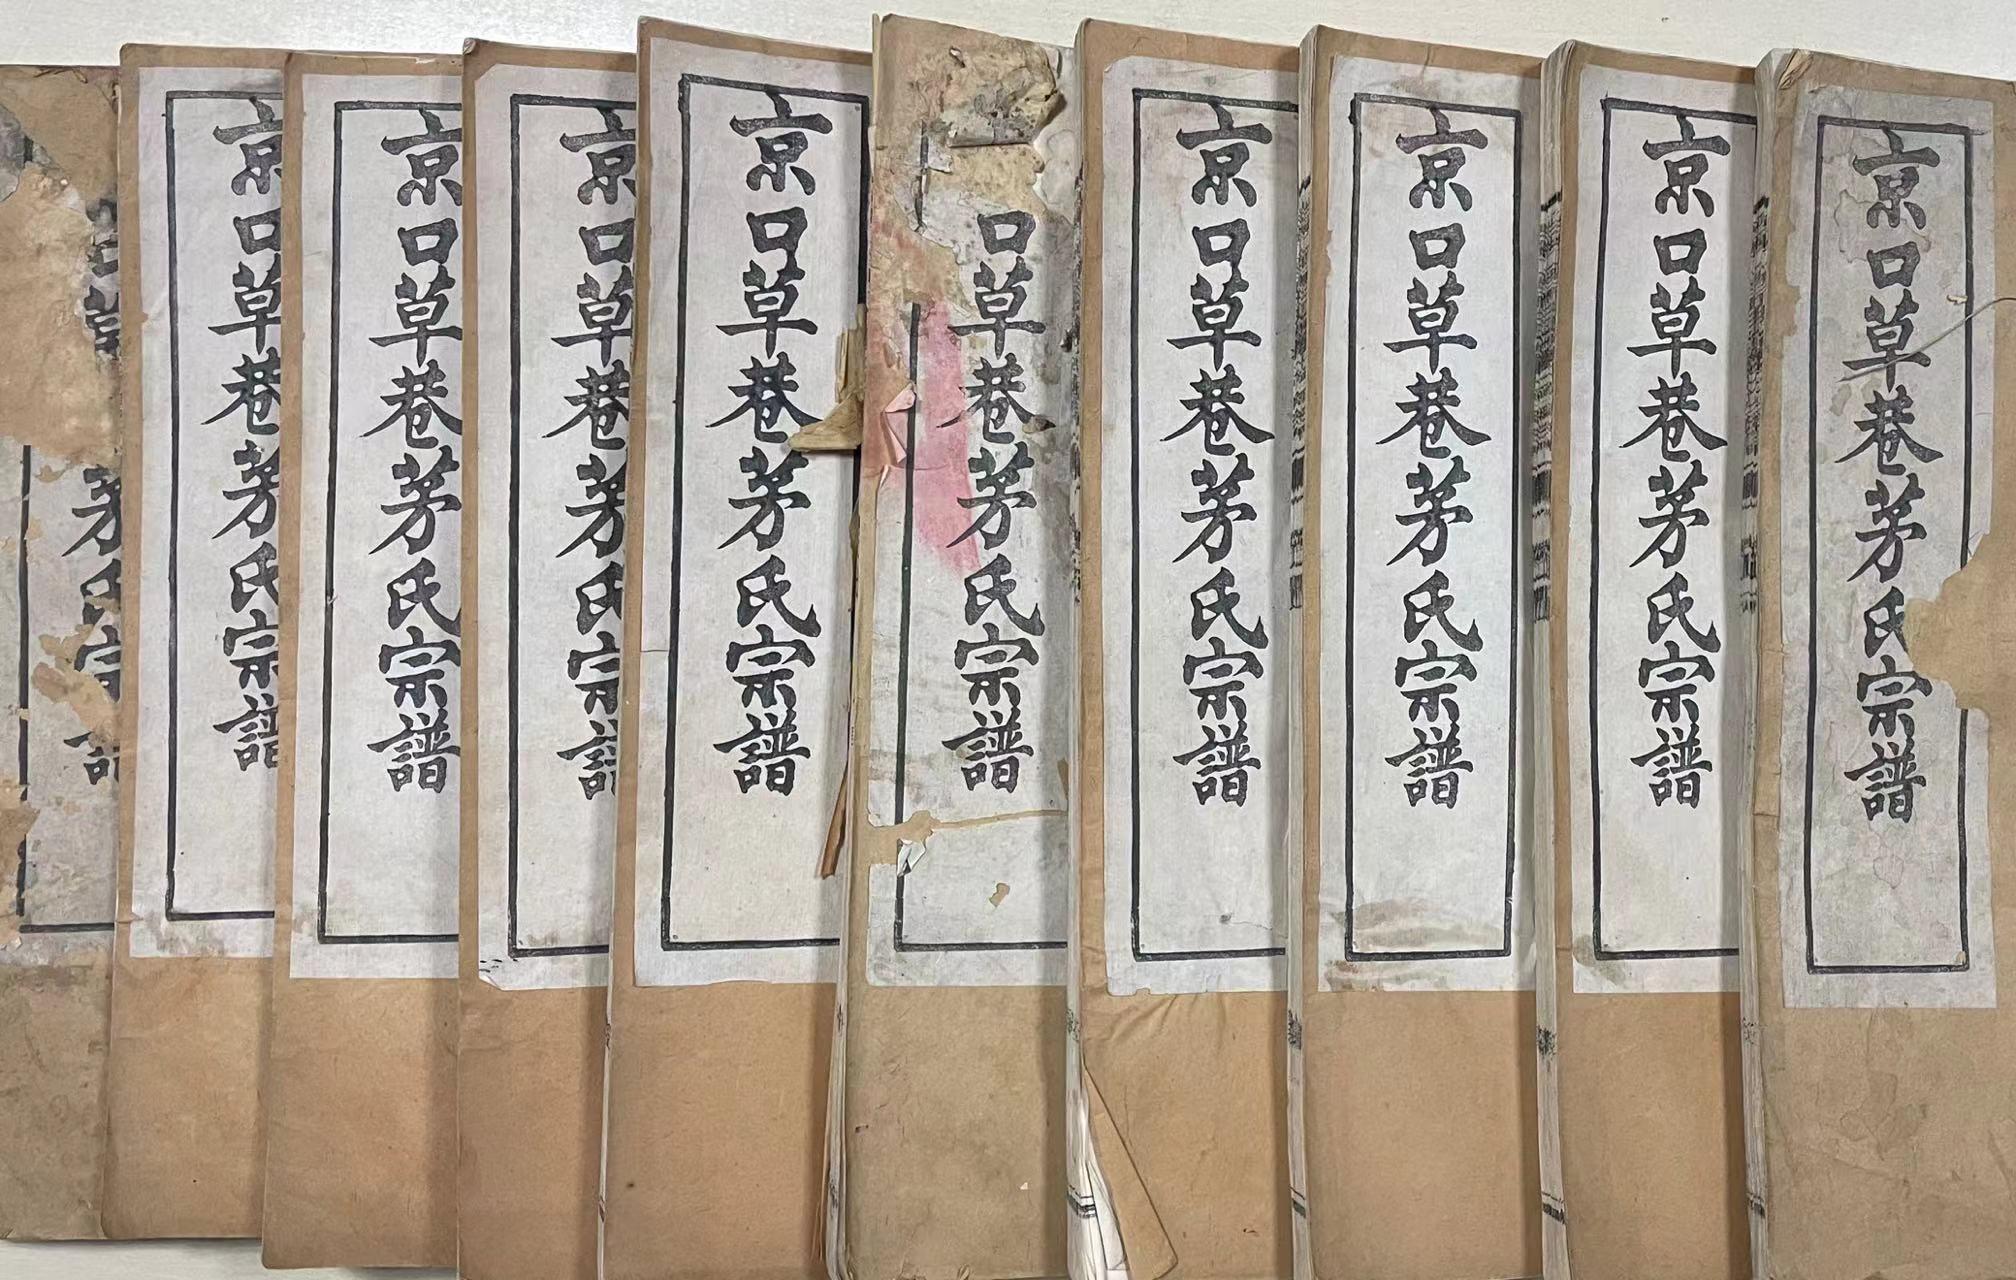 京口草巷茅氏宗譜
京口草巷茅氏宗譜
京口草巷茅氏宗譜
京口草巷茅氏宗譜
口草巷茅氏宗譜
京口草巷茅氏宗譜
京口草巷茅氏宗譜
京口草巷茅氏宗譜
京口草巷茅氏宗譜
草茅氏宗譜